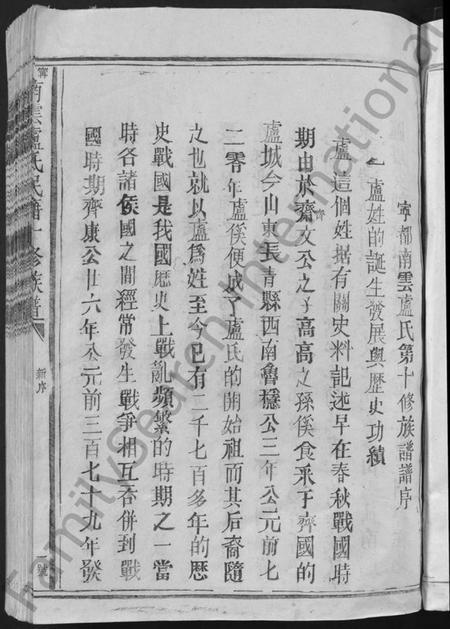 寧都南雲盧氏第十修族譜譜序
一 盧姓的誕生發展與歷史功績
盧這個姓据有關史料記述早在春秋戰國時
期由於齋文公之子高高之孫傒食釆于齊國的
齊
盧城今山東長青縣西南魯穩公三年公元前七
二零年盧傒便成了盧氏的開始祖而其后裔隨
之也就以盧爲姓至今已有二千七百多年的歷
史戰國是我國歷史上戰亂頻繁的時期之一當
時各諸侯國之間經常發生戰爭相互吞併到戰
國時期齊康公廿六年公元前三百七十九年發
寧南雲盧氏民譜十修族譜
新序
一號
FamilySearch International